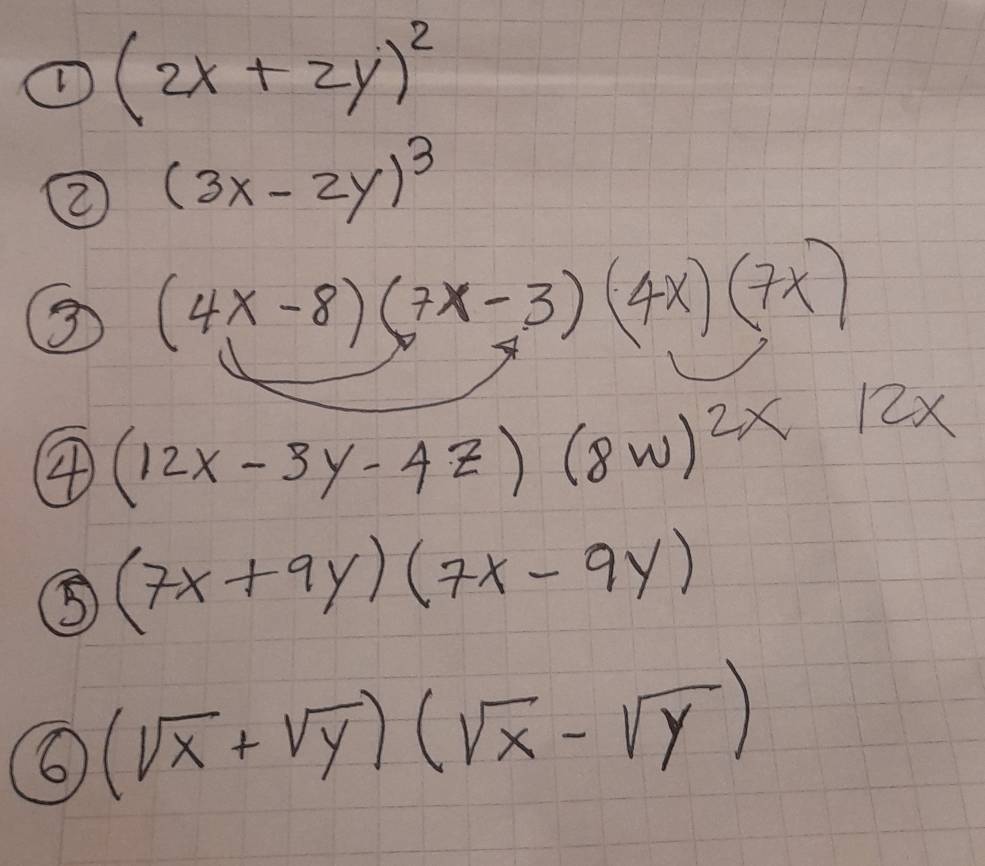 ① (2x + 2y)²
② (3x - 2y)³
③ (4x - 8)(7x - 3) (4x)(7x)
④ (12x - 3y - 4z) (8w) 2x 12x
⑤ (7x + 9y)(7x - 9y)
⑥ (√x + √y)(√x - √y)